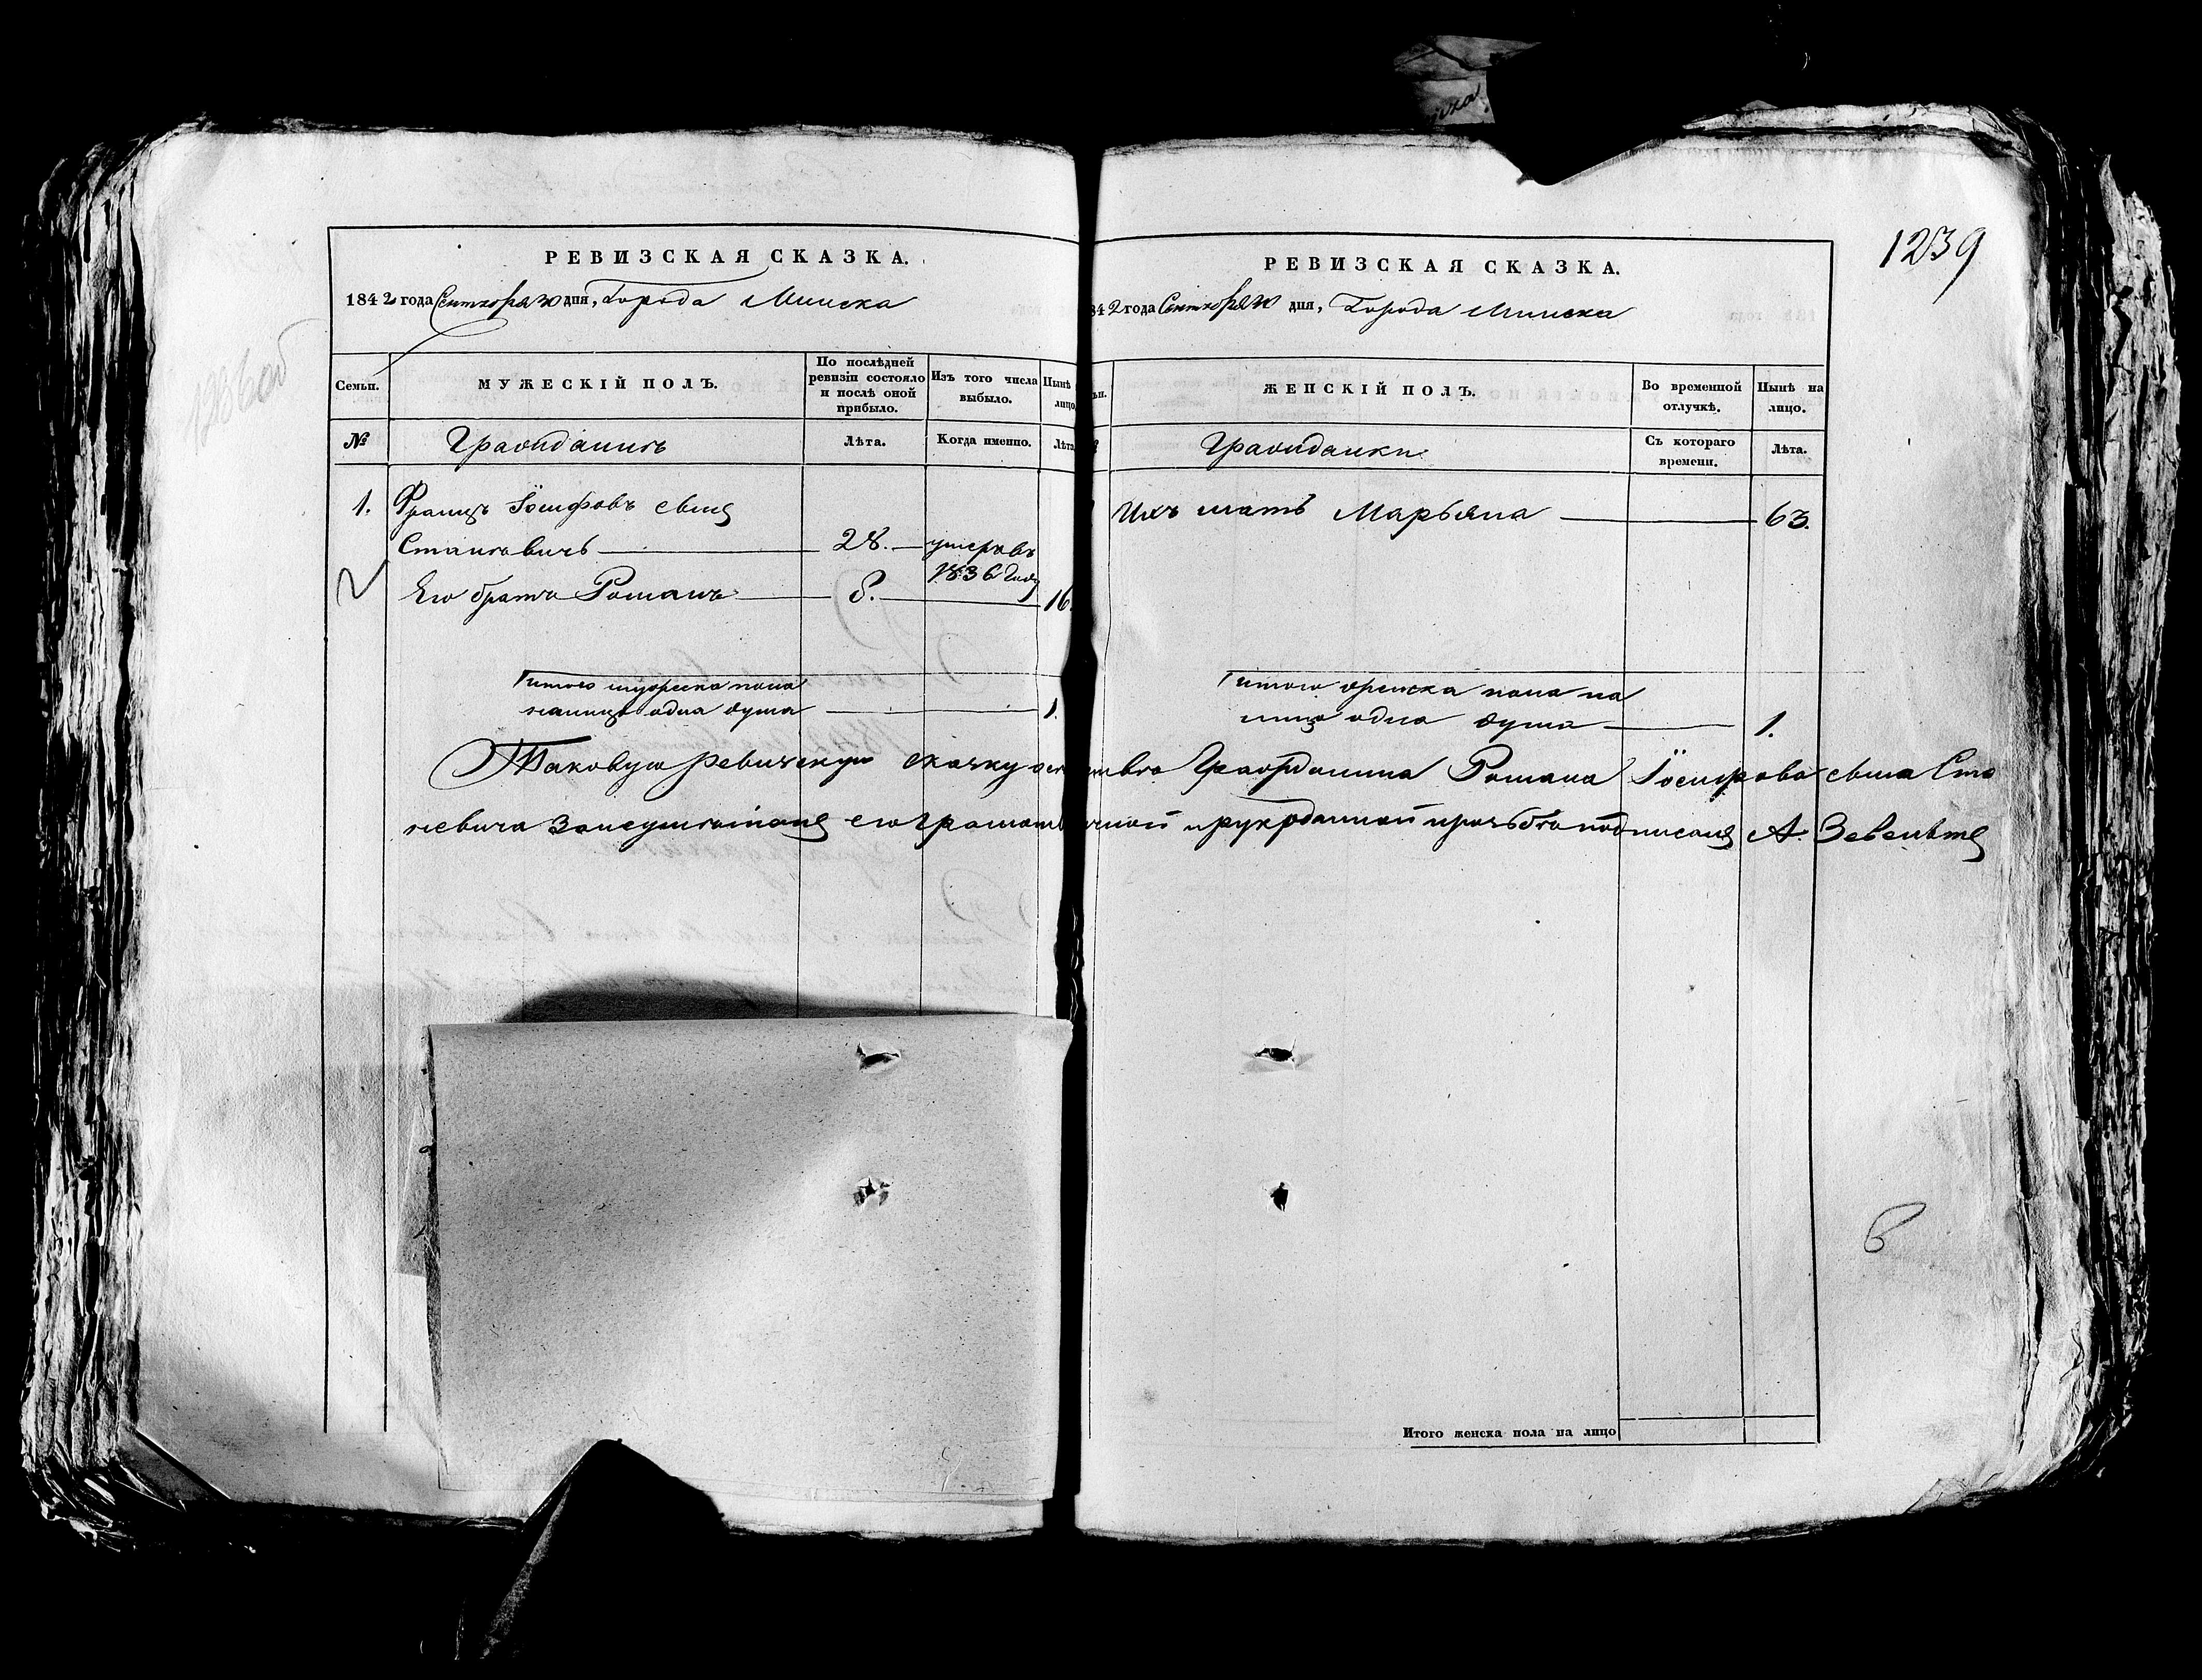 1239
РЕВИЗСКАЯ СКАЗКА.
1842 года Сентября 30 дня, Города Минска
Семьи.
МУЖЕСКІЙ ПОЛЪ.
По послѣдней ревизіи состояло и послѣ оной прибыло.
Изъ того числа выбыло.
Нынѣ лицо.
№
Гражданинъ
Лѣта.
Когда именно.
Лѣта
1. Францъ Іосифовъ сынъ
Станевичъ 28. умеръ въ
1836 году
2 Его братъ Романъ 8. 16.
Итого мужеска пола
налицо одна душа 1.
РЕВИЗСКАЯ СКАЗКА.
842 года Сентября 30 дня, Города Минска
ЖЕНСКІЙ ПОЛЪ.
Во временной отлучкѣ.
Нынѣ на лицо.
Гражданки
Съ котораго времени.
Лѣта.
Ихъ мать Марьяна 63.
Итого женска пола на
лицо одна душа 1.
Таковую ревизскую сказку Гражданина Романа Іосифова сына Ста
невича за неумѣніемъ его грамоты подписалъ А.
6
Итого женска пола на лицо